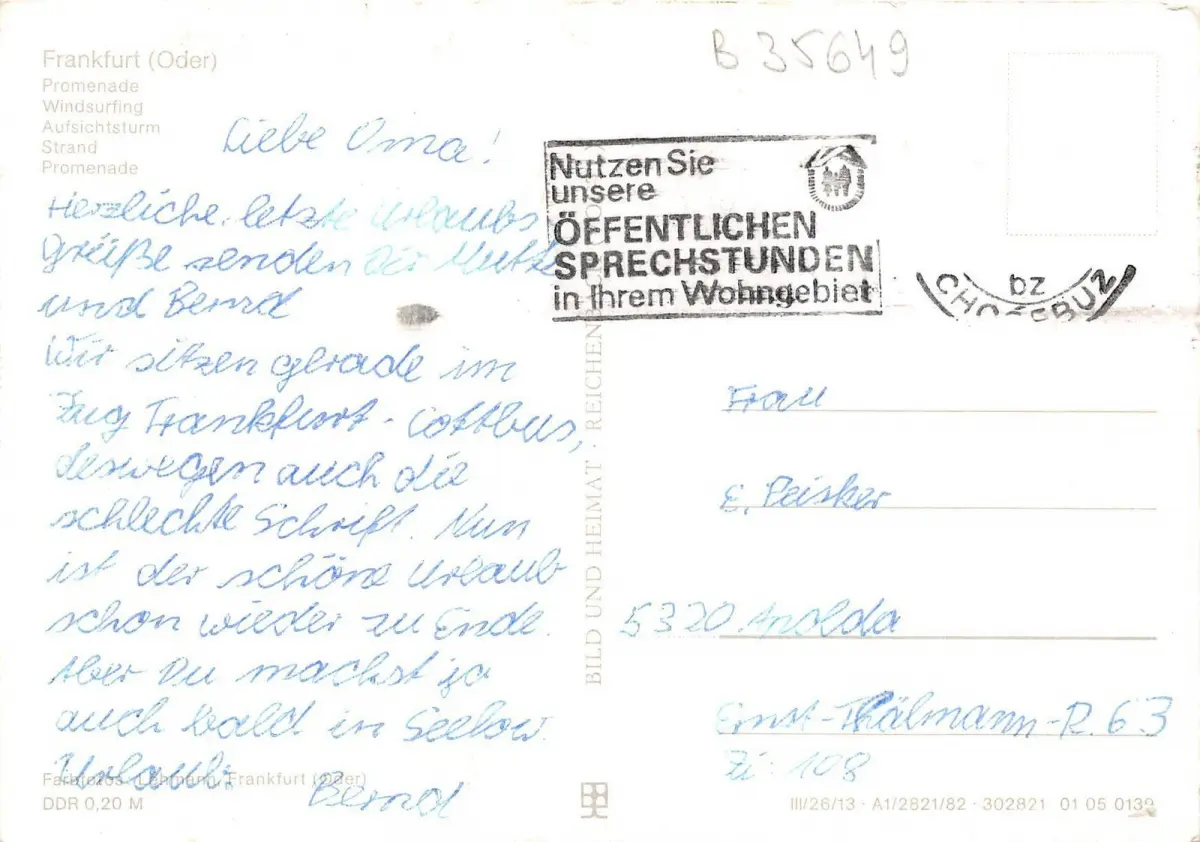 Frankfurt (Oder)
Promenade
Windsurfing
Aufsichtsturm
Strand
Promenade
B 35649
Liebe Oma!
Herzliche letzte Urlaubs
grüße senden Dir Mutti
und Bernd
Wir sitzen gerade im
Zug Frankfurt - Cottbus,
deswegen auch die
schlechte Schrift. Nun
ist der schöne Urlaub
schon wieder zu Ende.
Aber Du machst ja
auch bald in Seelow
Urlaub.
Bernd
Farbfotos: Lehmann, Frankfurt (Oder)
DDR 0,20 M
BILD UND HEIMAT · REICHENB
Nutzen Sie
unsere
ÖFFENTLICHEN
SPRECHSTUNDEN
in Ihrem Wohngebiet
bz
CHOŚEBUZ
Frau
E. Peisker
5320 Apolda
Ernst-Thälmann-R. 63
Zi. 108
III/26/13 · A1/2821/82 · 302821 01 05 0139